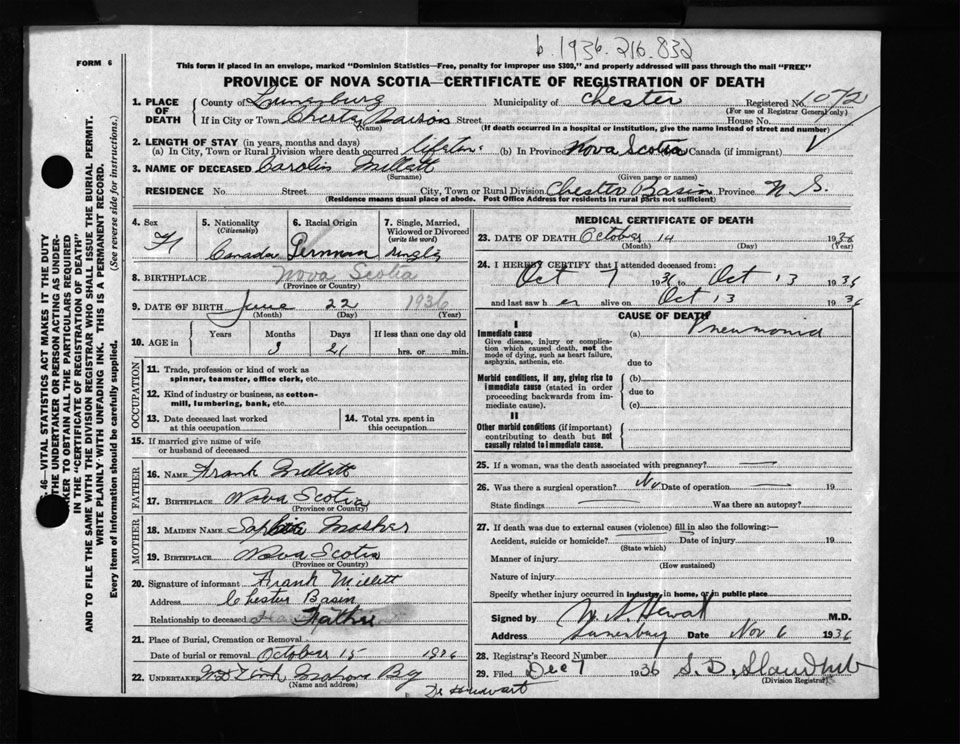 b. 1936. 216. 832
FORM 6
This form if placed in an envelope, marked "Dominion Statistics—Free, penalty for improper use $300," and properly addressed will pass through the mail "FREE"
PROVINCE OF NOVA SCOTIA—CERTIFICATE OF REGISTRATION OF DEATH
1. PLACE OF DEATH County of Lunenburg Municipality of Chester Registered No.
(For use of Registrar General only)
If in City or Town Street House No.
(Name) (If death occurred in a hospital or institution, give the name instead of street and number)
2. LENGTH OF STAY (in years, months and days)
(a) In City, Town or Rural Division where death occurred (b) In Province Nova Scotia Canada (if immigrant)
3. NAME OF DECEASED Carolin Millett
(Surname) (Given name or names)
RESIDENCE No. Street City, Town or Rural Division Chester Basin Province N. S.
(Residence means usual place of abode. Post Office Address for residents in rural parts not sufficient)
4. Sex F
5. Nationality (Citizenship) Canada
6. Racial Origin German
7. Single, Married, Widowed or Divorced (write the word) single
8. BIRTHPLACE Nova Scotia
(Province or Country)
9. DATE OF BIRTH June 22 1936
(Month) (Day) (Year)
10. AGE in Years Months Days If less than one day old
3 21 hrs. or min.
OCCUPATION
11. Trade, profession or kind of work as spinner, teamster, office clerk, etc.
12. Kind of industry or business, as cotton-mill, lumbering, bank, etc.
13. Date deceased last worked at this occupation
14. Total yrs. spent in this occupation
15. If married give name of wife or husband of deceased
FATHER
16. NAME Frank Millett
17. BIRTHPLACE Nova Scotia
(Province or Country)
MOTHER
18. MAIDEN NAME Mosher
19. BIRTHPLACE Nova Scotia
(Province or Country)
20. Signature of informant Frank Millett
Address Chester Basin
Relationship to deceased Father
21. Place of Burial, Cremation or Removal
Date of burial or removal October 15 1936
22. UNDERTAKER
(Name and address)
MEDICAL CERTIFICATE OF DEATH
23. DATE OF DEATH October 14 1936
(Month) (Day) (Year)
24. I HEREBY CERTIFY that I attended deceased from:
Oct 7 1936 to Oct 13 1936
and last saw h er alive on Oct 13 1936
CAUSE OF DEATH
I
Immediate cause (a) Pneumonia
Give disease, injury or complication which caused death, not the mode of dying, such as heart failure, asphyxia, asthenia, etc.
due to
Morbid conditions, if any, giving rise to immediate cause (stated in order proceeding backwards from immediate cause).
(b)
due to
(c)
II
Other morbid conditions (if important) contributing to death but not causally related to immediate cause.
25. If a woman, was the death associated with pregnancy? —
26. Was there a surgical operation? No Date of operation — 19
State findings — Was there an autopsy?
27. If death was due to external causes (violence) fill in also the following:—
Accident, suicide or homicide? Date of injury 19
(State which)
Manner of injury
(How sustained)
Nature of injury
Specify whether injury occurred in industry, in home, or in public place
Signed by M.D.
Address Lunenburg Date Nov 6 1936
28. Registrar's Record Number
29. Filed Dec 7 1936
(Division Registrar)
S. 46—VITAL STATISTICS ACT MAKES IT THE DUTY
OF THE UNDERTAKER OR PERSON ACTING AS UNDERTAKER
TO OBTAIN ALL THE PARTICULARS REQUIRED
IN THE "CERTIFICATE OF REGISTRATION OF DEATH"
AND TO FILE THE SAME WITH THE DIVISION REGISTRAR WHO SHALL ISSUE THE BURIAL PERMIT.
WRITE PLAINLY WITH UNFADING INK. THIS IS A PERMANENT RECORD.
Every item of information should be carefully supplied. (See reverse side for instructions.)